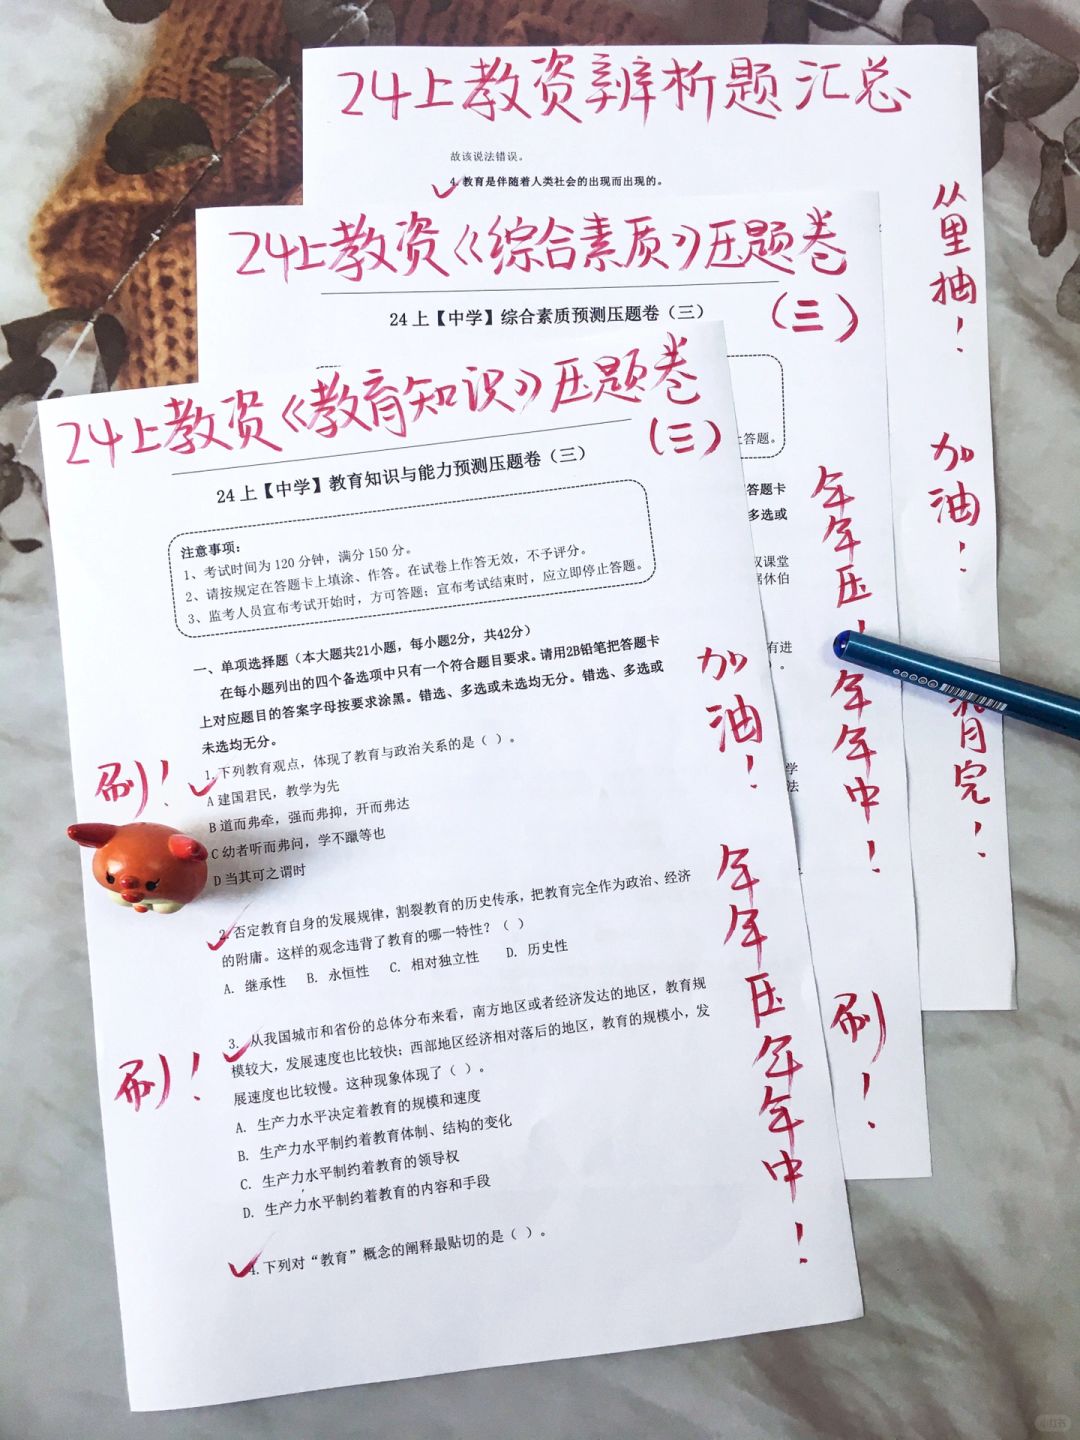 24上教资辨析题汇总
故该说法错误。
4.教育是伴随着人类社会的出现而出现的。
从里抽！
加油！
背完！
24上教资《综合素质》压题卷
（三）
24上【中学】综合素质预测压题卷（三）
上答题。
答题卡
多选或
课堂
休伯
有进
）。
学
法
年年压！年年中！
刷！
24上教资《教育知识》压题卷
（三）
24上【中学】教育知识与能力预测压题卷（三）
注意事项：
1、考试时间为120分钟，满分150分。
2、请按规定在答题卡上填涂、作答。在试卷上作答无效，不予评分。
3、监考人员宣布考试开始时，方可答题；宣布考试结束时，应立即停止答题。
一、单项选择题（本大题共21小题，每小题2分，共42分）
在每小题列出的四个备选项中只有一个符合题目要求。请用2B铅笔把答题卡
上对应题目的答案字母按要求涂黑。错选、多选或未选均无分。错选、多选或
未选均无分。
刷！
1.下列教育观点，体现了教育与政治关系的是（ ）。
A建国君民，教学为先
B道而弗牵，强而弗抑，开而弗达
C幼者听而弗问，学不躐等也
D当其可之谓时
2.否定教育自身的发展规律，割裂教育的历史传承，把教育完全作为政治、经济
的附庸。这样的观念违背了教育的哪一特性？（ ）
A. 继承性 B. 永恒性 C. 相对独立性 D. 历史性
刷！
3. 从我国城市和省份的总体分布来看，南方地区或者经济发达的地区，教育规
模较大，发展速度也比较快；西部地区经济相对落后的地区，教育的规模小，发
展速度也比较慢。这种现象体现了（ ）。
A. 生产力水平决定着教育的规模和速度
B. 生产力水平制约着教育体制、结构的变化
C. 生产力水平制约着教育的领导权
D. 生产力水平制约着教育的内容和手段
4.下列对“教育”概念的阐释最贴切的是（ ）。
加油！
年年压年年中！
小红书